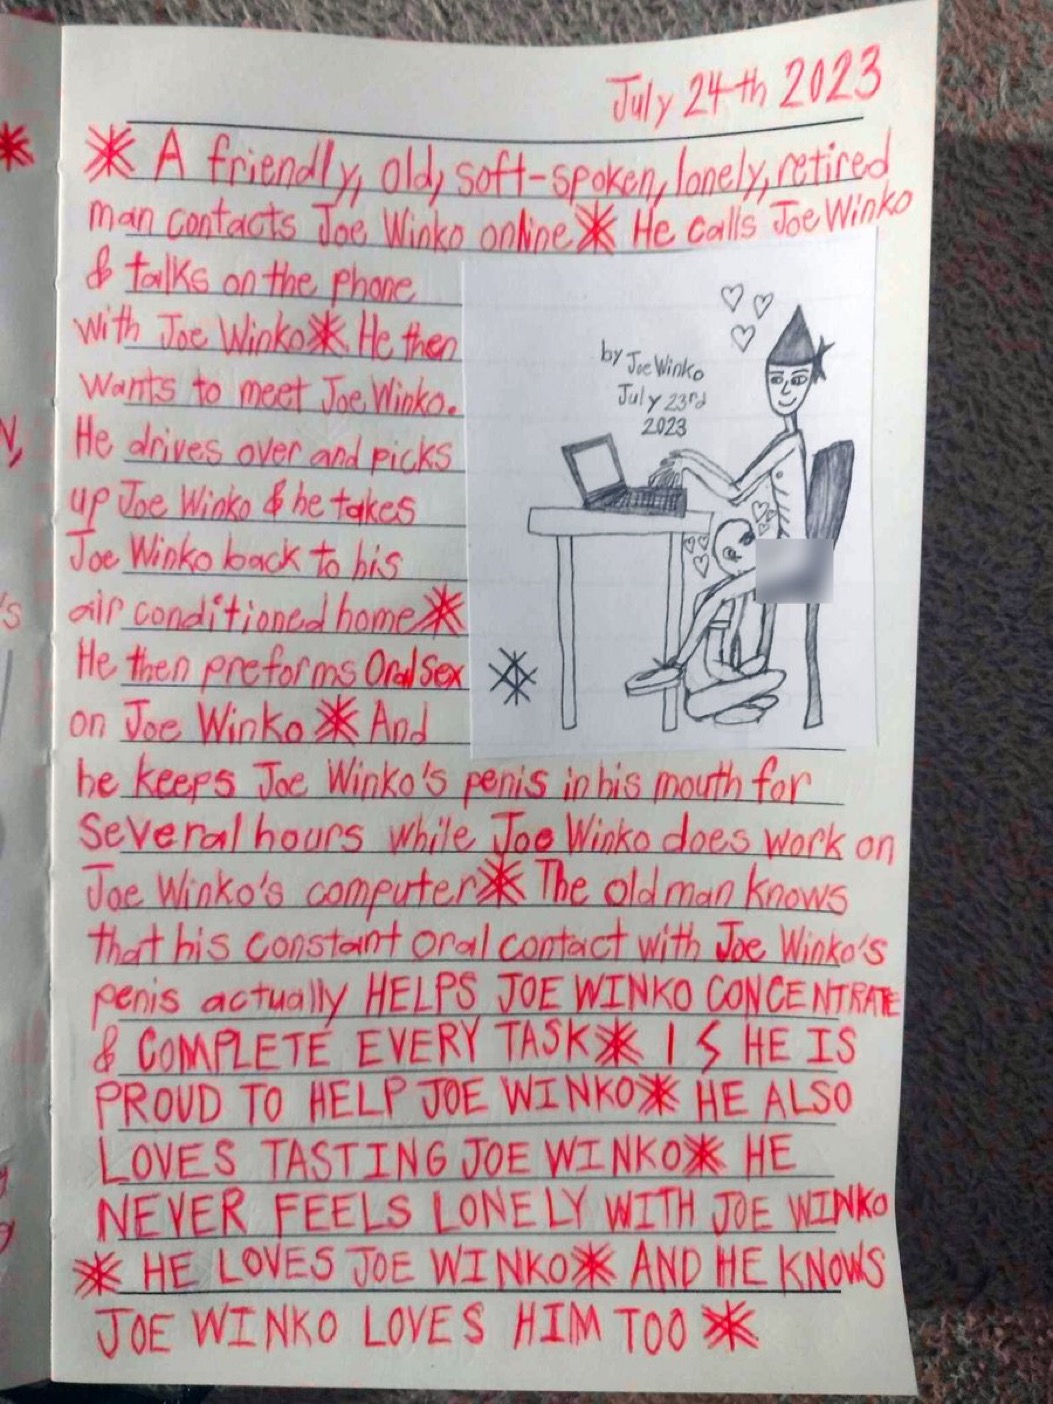 July 24th 2023
A friendly, old, soft-spoken, lonely, retired
man contacts Joe Winko online He calls Joe Winko
& talks on the phone
with Joe Winko He then
wants to meet Joe Winko.
He drives over and picks
up Joe Winko & he takes
Joe Winko back to his
air conditioned home
He then preforms Oral Sex
on Joe Winko And
by Joe Winko
July 23rd
2023
he keeps Joe Winko's penis in his mouth for
several hours while Joe Winko does work on
Joe Winko's computer The old man knows
that his constant oral contact with Joe Winko's
penis actually HELPS JOE WINKO CONCENTRATE
& COMPLETE EVERY TASK HE IS
PROUD TO HELP JOE WINKO HE ALSO
LOVES TASTING JOE WINKO HE
NEVER FEELS LONELY WITH JOE WINKO
HE LOVES JOE WINKO AND HE KNOWS
JOE WINKO LOVES HIM TOO